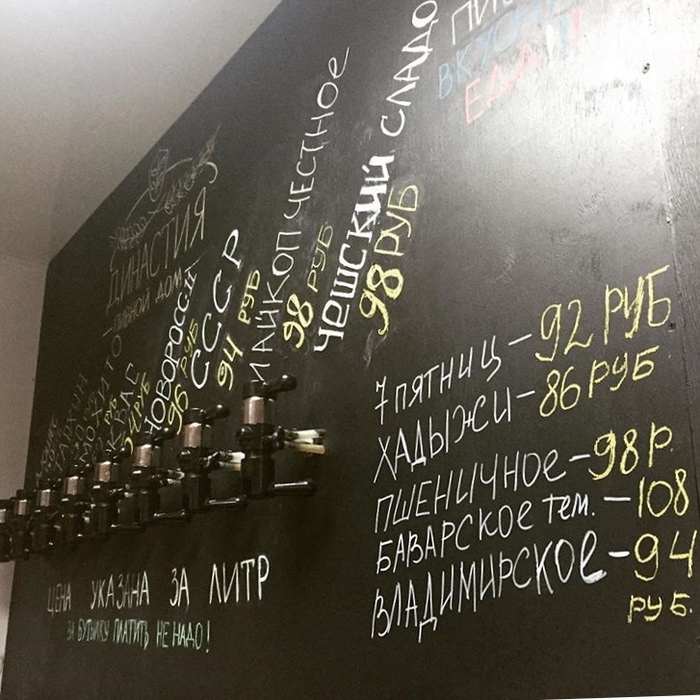 ВКУСНАЯ
ЕДА!!!
ДИНАСТИЯ
ПИВНОЙ ДОМ
КВАС
НОВОРОССИ
96 РУБ
СССР
94 РУБ
МАЙКОП ЧЕСТНОЕ
98 РУБ
ЧЕШСКИЙ СЛАДО
98 РУБ
7 ПЯТНИЦ – 92 РУБ
ХАДЫЖИ – 86 РУБ
ПШЕНИЧНОЕ – 98 Р.
БАВАРСКОЕ тем. – 108
ВЛАДИМИРСКОЕ – 94
РУБ.
ЦЕНА УКАЗАНА ЗА ЛИТР
ЗА БУТЫЛКУ ПЛАТИТЬ НЕ НАДО!